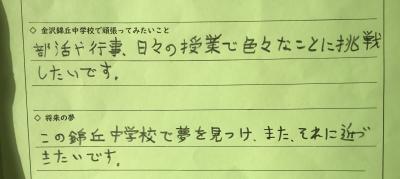 ◇ 金沢錦丘中学校で頑張ってみたいこと
部活や行事、日々の授業で色々なことに挑戦
したいです。
◇ 将来の夢
この錦丘中学校で夢を見つけ、また、それに近づ
きたいです。